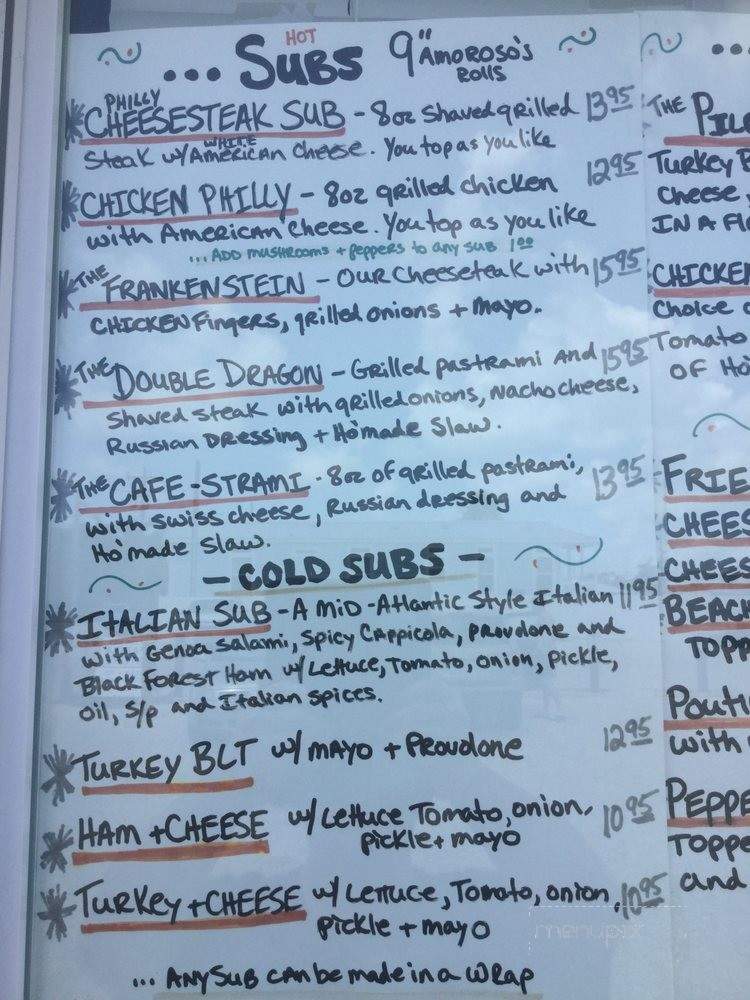 HOT
... SUBS 9" AMOROSO'S ROLLS
PHILLY
CHEESESTEAK SUB - 8oz Shaved grilled 13.95
WHITE
Steak w/American cheese. You top as you like
CHICKEN PHILLY - 8oz grilled chicken 12.95
with American cheese. You top as you like
... ADD mushrooms + peppers to any sub 1.00
THE FRANKENSTEIN - OUR Cheeseteak with 15.95
CHICKEN Fingers, grilled onions + mayo.
THE DOUBLE DRAGON - Grilled pastrami And 15.95
Shaved steak with grilled onions, Nacho cheese,
Russian Dressing + Ho'made Slaw.
THE CAFE-STRAMI - 8oz of grilled pastrami, 13.95
with swiss cheese, Russian dressing and
Ho'made Slaw.
- COLD SUBS -
ITALIAN SUB - A MiD-Atlantic Style Italian 11.95
with Genoa Salami, Spicy Cappicola, Provolone and
Black Forest Ham w/Lettuce, Tomato, onion, pickle,
oil, S/p and Italian spices.
TURKEY BLT w/ mayo + Provolone 12.95
HAM + CHEESE w/ Lettuce Tomato, onion, 10.95
pickle + mayo
TURKEY + CHEESE w/ Lettuce, Tomato, onion, 10.95
pickle + mayo
... ANY SUB CAN be made in a WRAP
...
THE
Turkey
Cheese,
IN A
CHICKEN
Choice
Tomato
OF
FRIE
CHEES
CHEES
BEAC
TOPP
Pouti
with
PEPPE
TOPPE
and
menupix